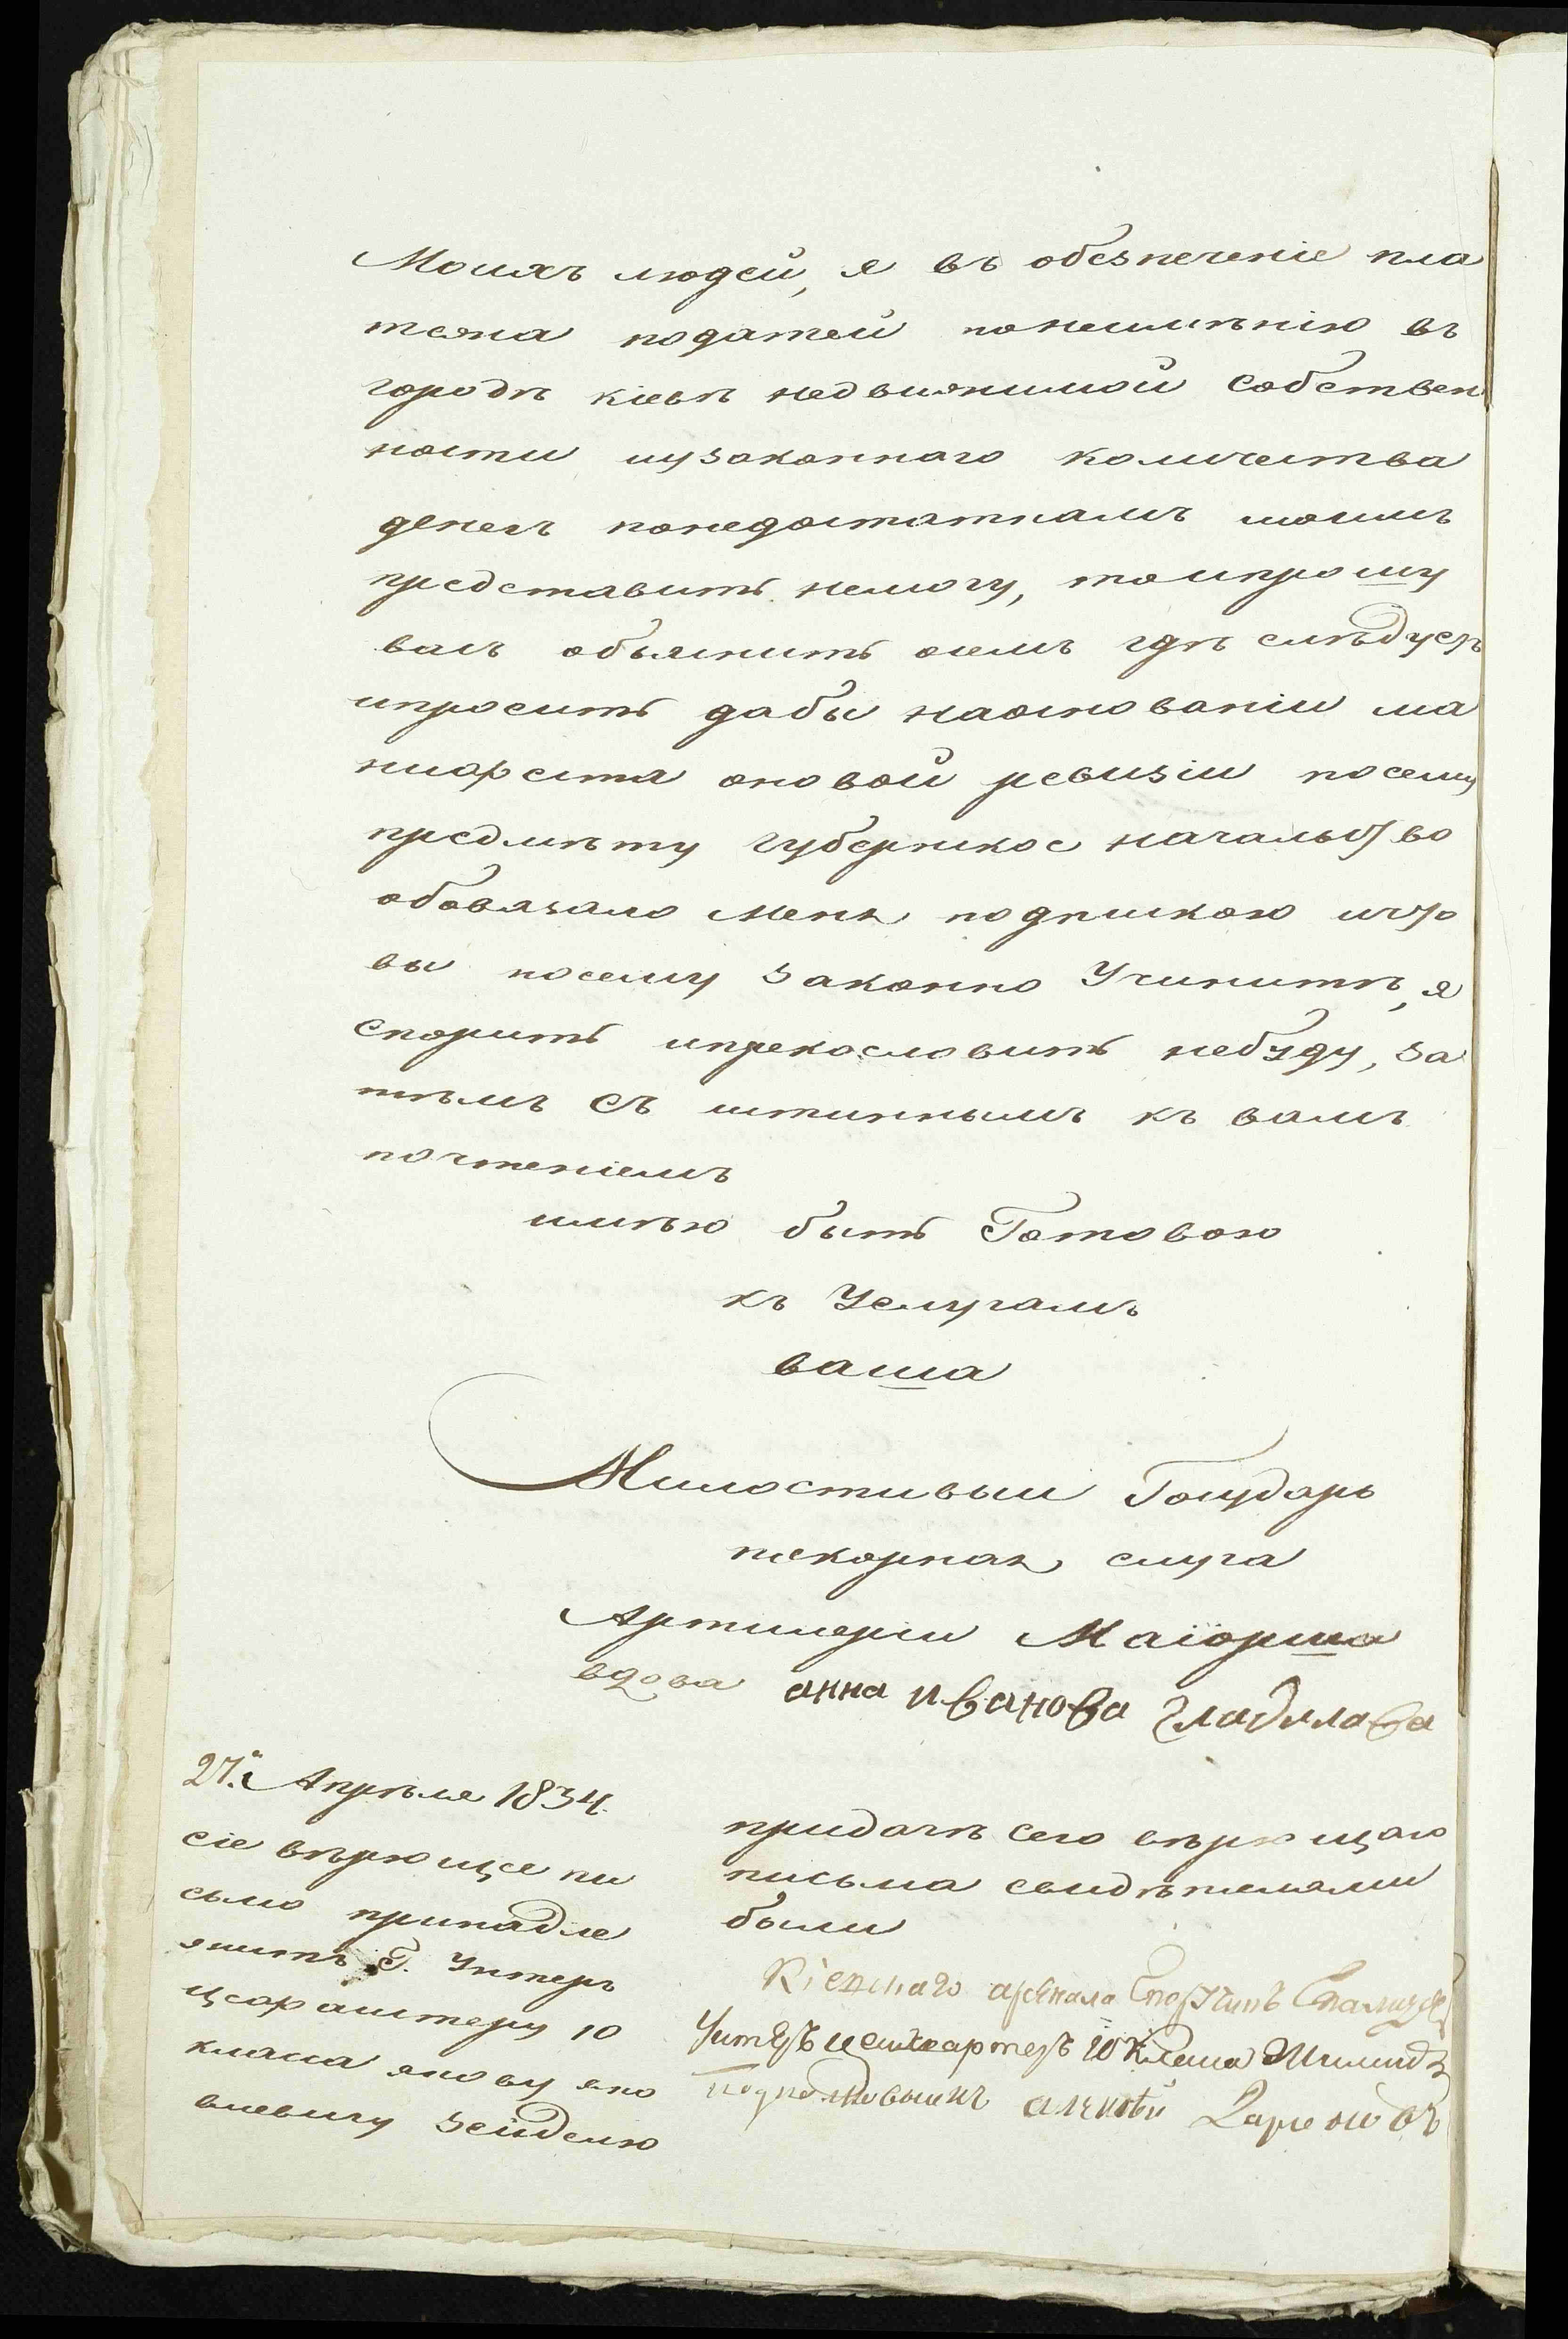 Моихъ людей, я въ обезпеченіе пла
тежа податей понеимѣнію въ
городѣ кіевѣ недвижимой Собствен
ности иузаконнаго количества
денегъ понедостаткамъ моимъ
представить немогу, тоипрошу
васъ объяснить осемъ гдѣ слѣдуетъ
ипросить дабы наоснованіи ма
нифеста оновой ревизіи посему
предмѣту губернское начальство
обовязало меня подпискою ичто
вы посему законно Учините, я
Спорить ипрекословить небуду, за
тѣмъ Съ истиннымъ къ вамъ
почтеніемъ
имѣю быть Готовою
къ Услугамъ
ваша
Милостивыи Государь
покорная слуга
Артилеріи Маіорша
вдова анна иванова
27. Апрѣля 1834.
сіе вѣрющее пи
сьмо принадле
житъ Г. Унтеръ
цейхвартеру 10
класса якову яко
влевичу Зейделю
придачѣ сего вѣрющаго
письма свидѣтелями
были
Кіевскаго арсенала
Унтеръ цейхвартеръ 10 Класса
алексѣй